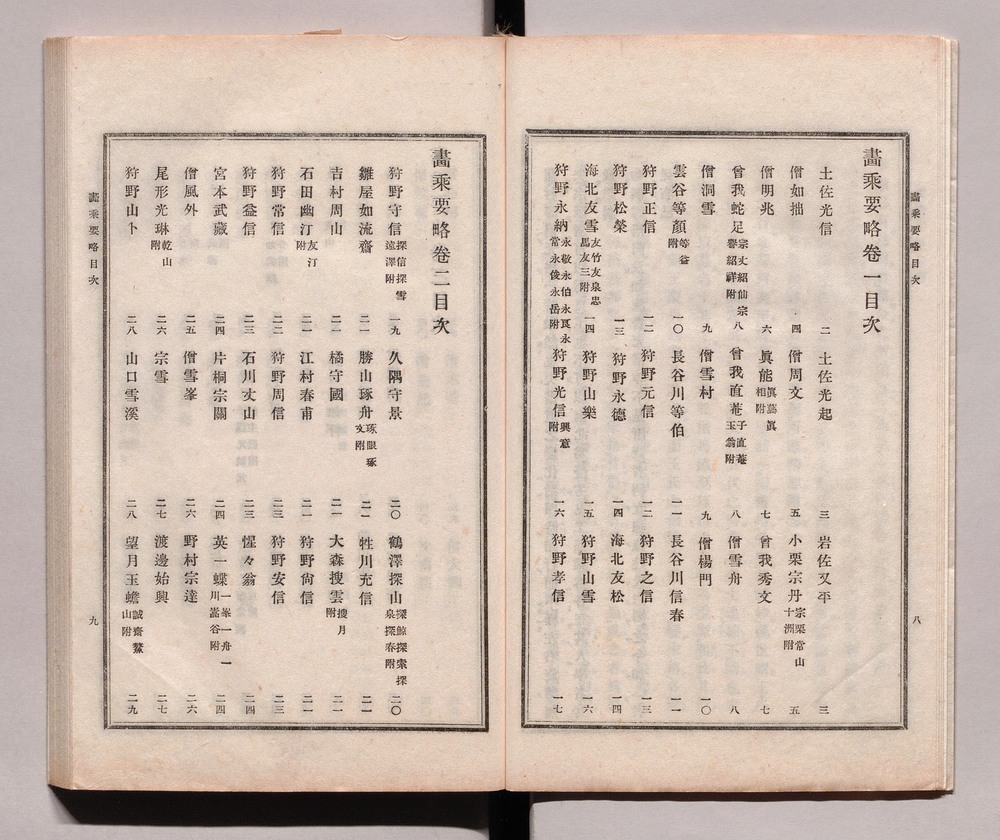 畫乘要略目次
八
畫乘要略卷一目次
土佐光信 二 土佐光起 三 岩佐又平 三
僧如拙 四 僧周文 五 小栗宗丹 宗栗常山十洲附 五
僧明兆 六 眞能 眞藝眞相附 七 曾我秀文 七
曾我蛇足 宗丈紹仙宗譽紹祥附 八 曾我直菴 子直菴玉翁附 八 僧雪舟 八
僧洞雪 九 僧雪村 九 僧楊門 一〇
雲谷等顏 等益附 一〇 長谷川等伯 一一 長谷川信春 一一
狩野正信 一二 狩野元信 一二 狩野之信 一三
狩野松榮 一三 狩野永德 一四 海北友松 一四
海北友雪 友竹友泉忠馬友三附 一四 狩野山樂 一五 狩野山雪 一六
狩野永納 永敬永伯永良永常永俊永岳附 狩野光信 興意附 一六 狩野孝信 一七
畫乘要略卷二目次
狩野守信 探信探雪遠澤附 一九 久隅守景 二〇 鶴澤探山 探鯨探索探泉探春附 二〇
雛屋如流齋 二一 勝山琢舟 琢眼琢文附 二一 牲川充信 二一
吉村周山 二一 橘守國 二一 大森捜雲 捜月附 二一
石田幽汀 友汀附 二一 江村春甫 二一 狩野尙信 二一
狩野常信 二二 狩野周信 二三 狩野安信 二三
狩野益信 二三 石川丈山 二三 惺々翁 二四
宮本武藏 二四 片桐宗關 二四 英一蝶 一峯一舟一川嵩谷附 二四
僧風外 二五 僧雪峯 二六 野村宗達 二六
尾形光琳 乾山附 二六 宗雪 二七 渡邊始興 二七
狩野山卜 二八 山口雪溪 二八 望月玉蟾 誠齋鰲山附 二九
畫乘要略目次
九